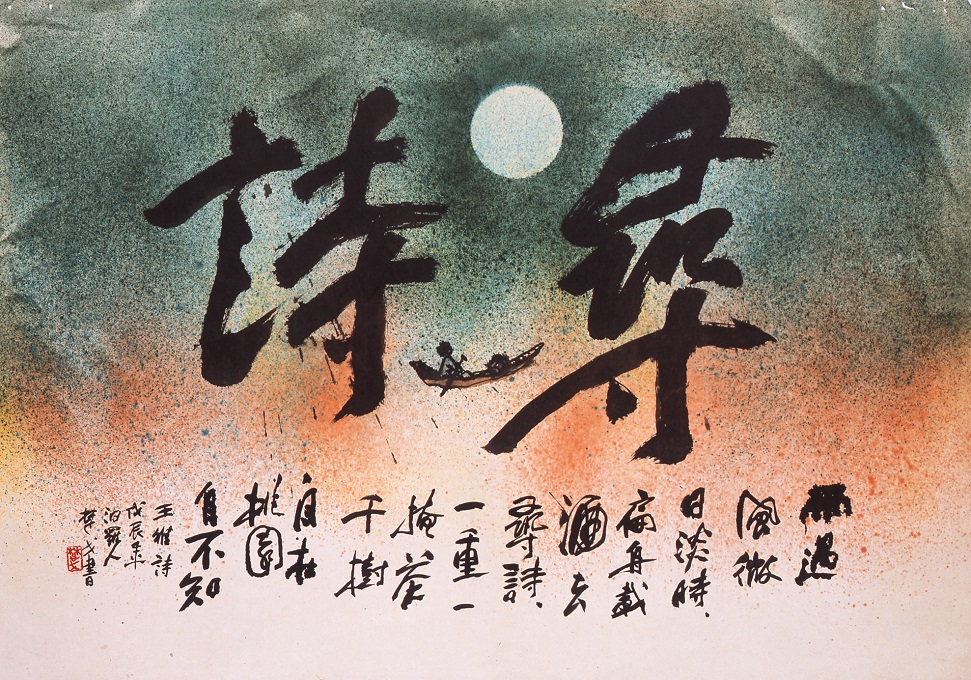 尋詩
雨過
風微
日淡時、
扁舟載
酒去
尋詩、
一重一
掩花
千樹
身在
桃園
自不知
王維詩
戊辰
汨羅人
楚戈書